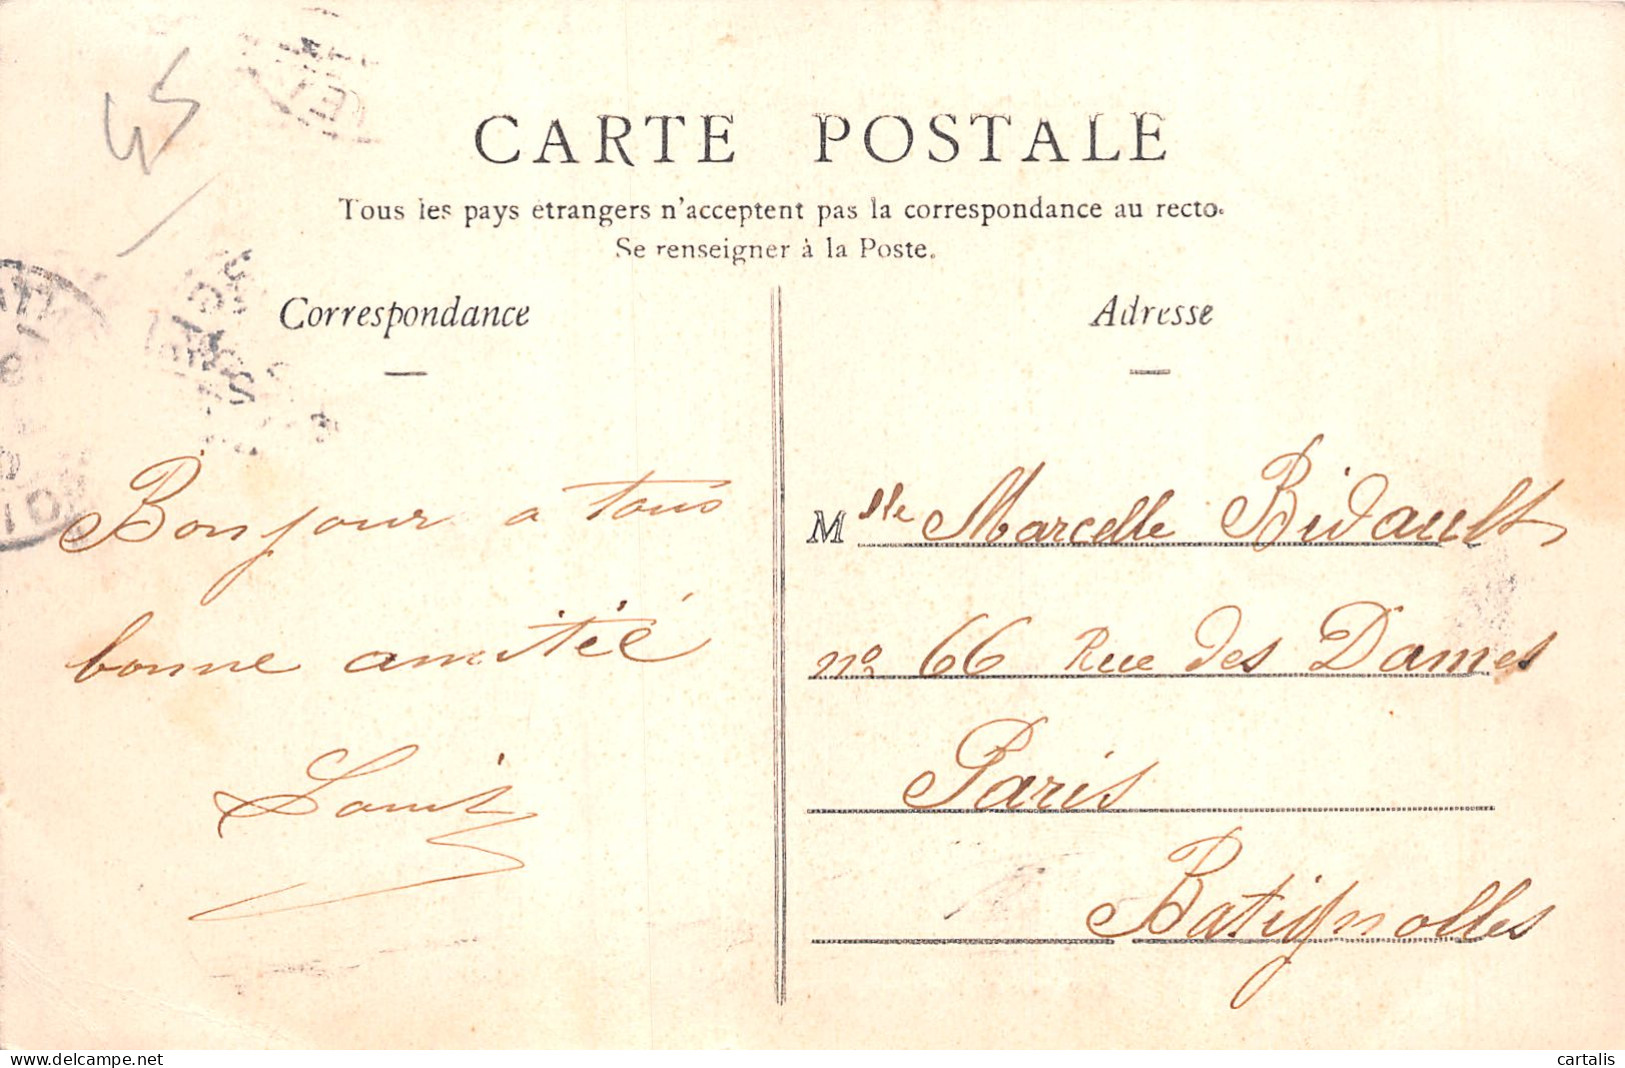 45
CARTE POSTALE
Tous les pays etrangers n'acceptent pas la correspondance au recto.
Se renseigner à la Poste.
Correspondance
Adresse
Bonjour a tous
bonne amitié
Louis
Mlle Marcelle Bidault
no 66 Rue des Dames
Paris
Batignolles
www.delcampe.net
cartalis